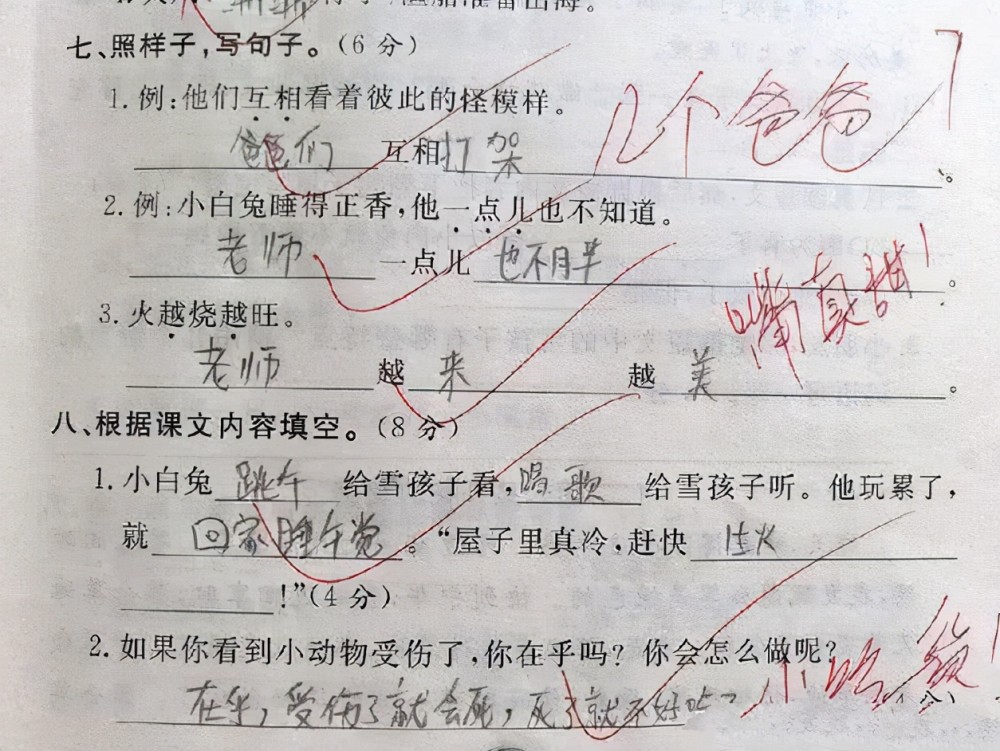 准备出海。
七、照样子,写句子。(6分)
1.例:他们互相看着彼此的怪模样。
爸爸们 互相打架 。
2个爸爸
2.例:小白兔睡得正香,他一点儿也不知道。
老师 一点儿 也不月半 。
嘴真甜!
3.火越烧越旺。
老师 越 来 越 美 。
八、根据课文内容填空。(8分)
1.小白兔 跳午 给雪孩子看,唱歌 给雪孩子听。他玩累了,
就 回家睡午觉 。“屋子里真冷,赶快
!”(4分)
2.如果你看到小动物受伤了,你在乎吗?你会怎么做呢?
在乎,受伤了就会死,死了就不好吃了
分)